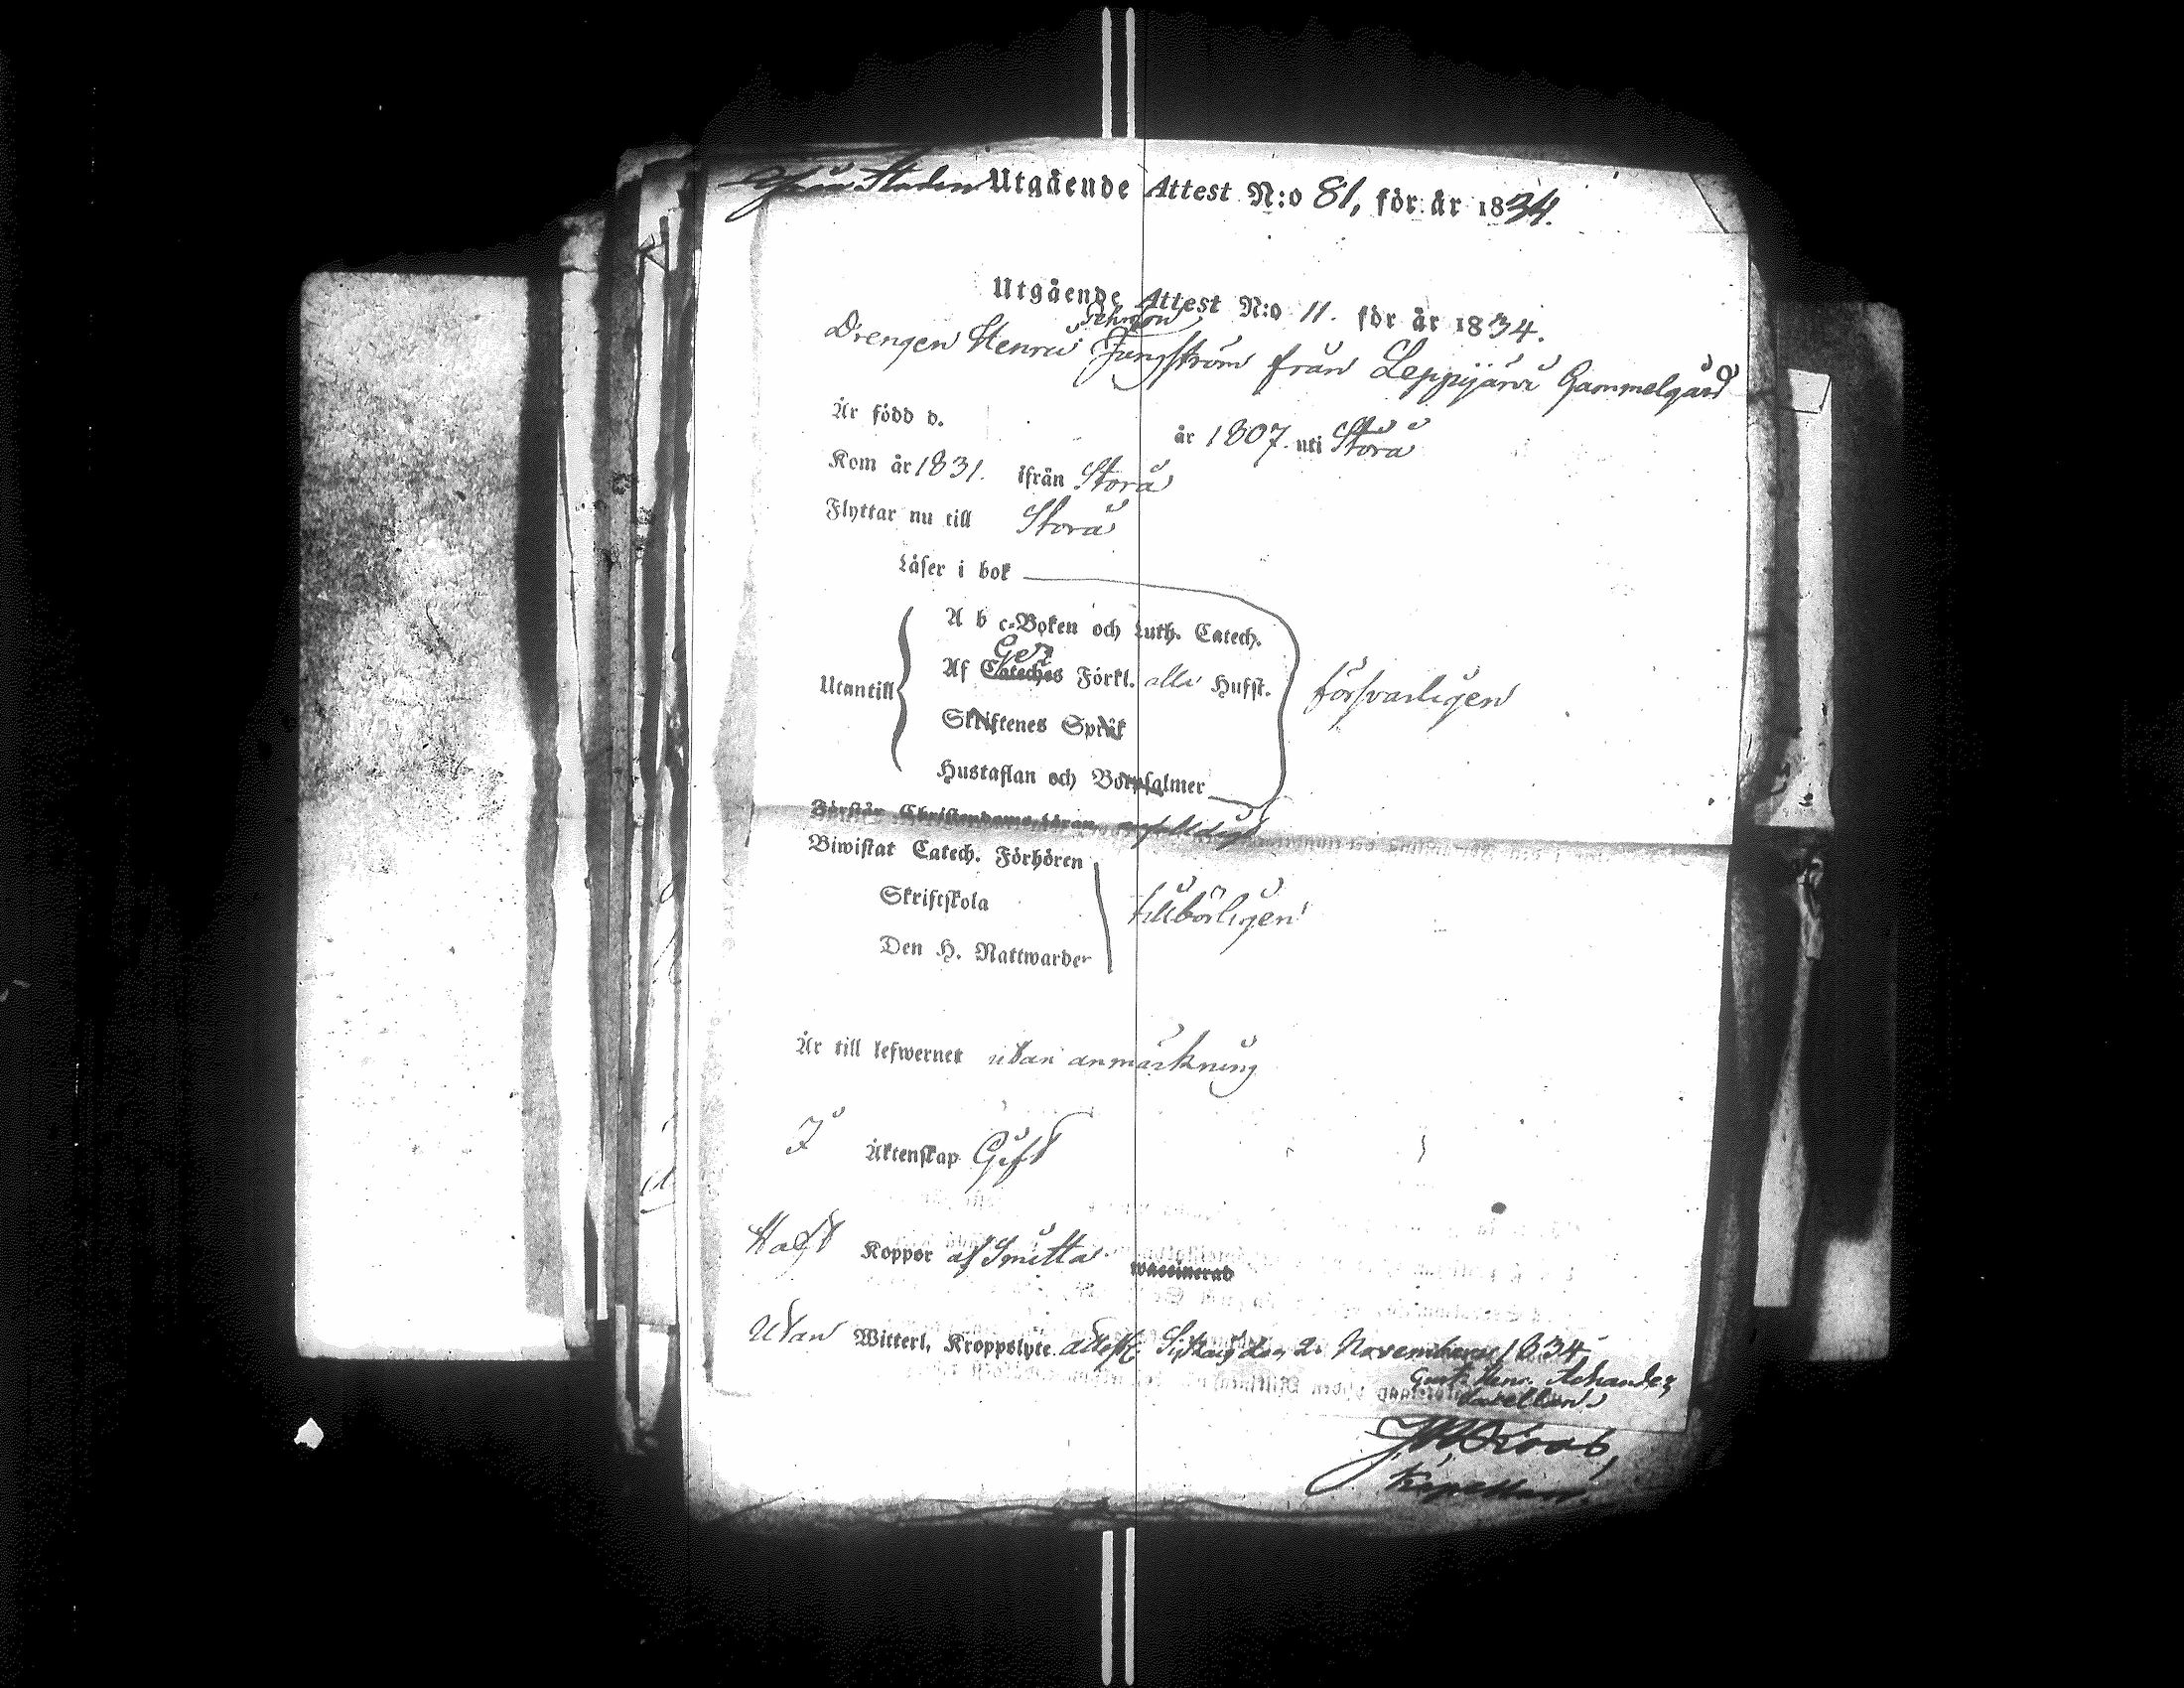 Staden Utgående Attest N:o 81, för år 1834.
Utgående Attest N:o 11. för år 1834.
Johnson
Drengen Henric Jungström från Leppijärvi Gammelgård
Är född d. år 1807. uti Storå
Kom år 1831. ifrån Storå
Flyttar nu till Storå
Läser i bok
A b c-Boken och Luth. Catech.
Utantill
Af Cateches Förkl. alla Hufst.
försvarligen
Skriftenes Språk
Hustaflan och Botpsalmer
Förstår Christendoms-läran enfaldigt
Biwistat Catech. Förhören
Skriftskola
tillbörligen
Den H. Nattwarden
Är till lefwernet utan anmärkning
I Äktenskap Gift
Haft Koppor af Smitta waccinerad
Utan Witterl. Kroppslyte. den 2. November 1834.
Gust. Henr.
Kapellan.